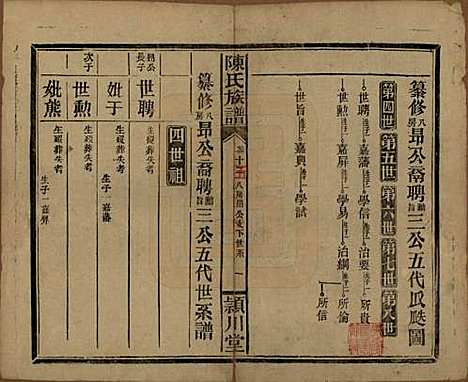 纂修八房昂公裔聘勳旨三公五代瓜瓞圖
第四世 第五世 第六世 第七世 第八世
世聘 嘉藩 學信 治要 所貴
世勲 嘉屏 學易 治綱 所倫
所信
世旨 嘉興 學試
陳氏族譜
卷十五 八房昂公支下世系 一
潁川堂
纂修八房昂公裔聘勳旨三公五代世系譜
四世祖
昂公長子 世聘 生歿葬失考
妣于 生歿葬失考 生子一嘉藩
次子 世勲 生歿葬失考
妣熊 生歿葬失考 生子一嘉屏